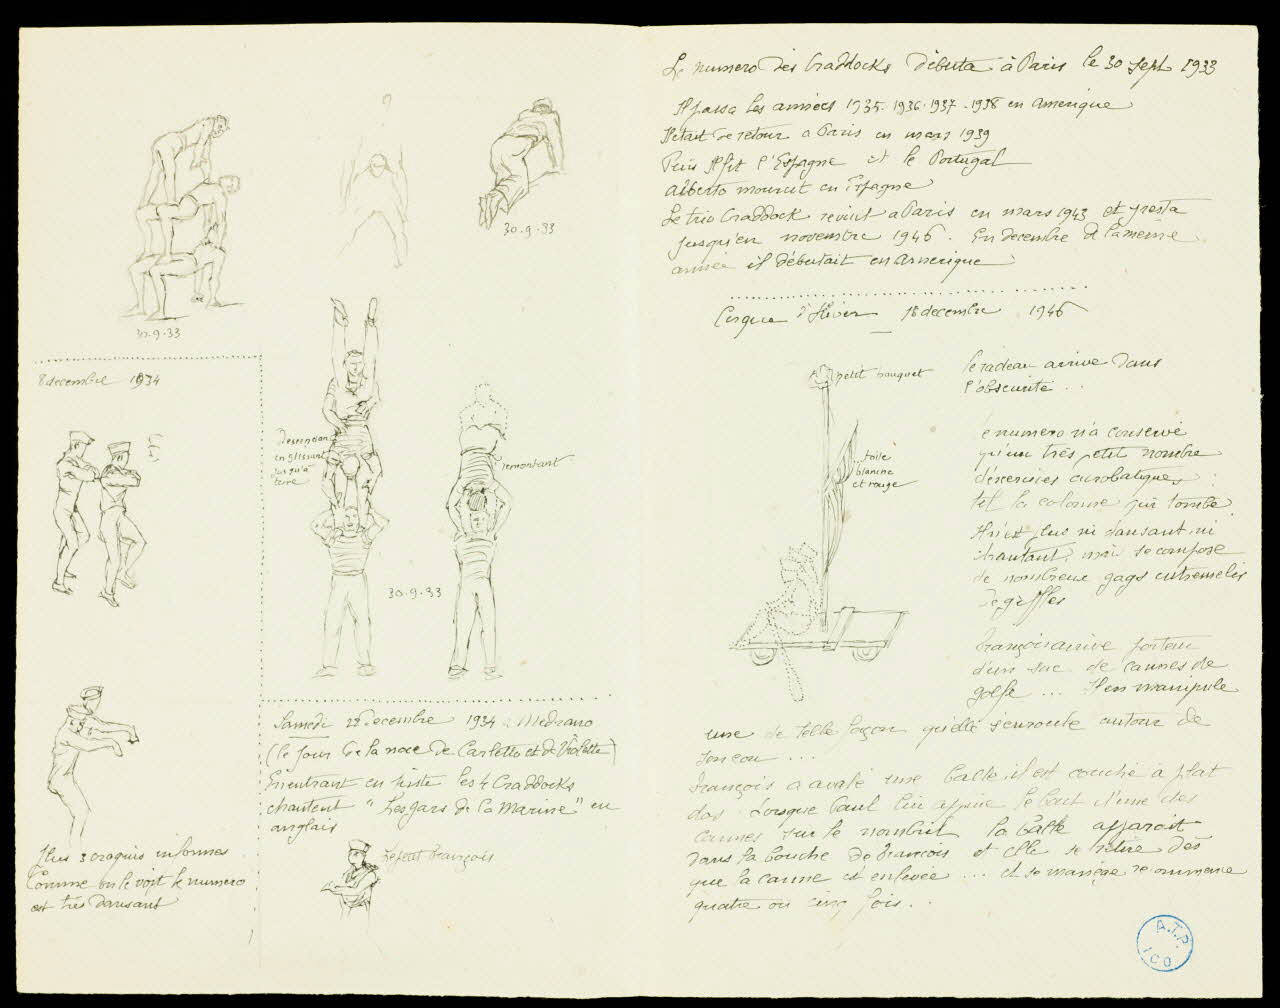 30.9.33
30.9.33
8 decembre 1934
Descendant
en glissant
jusqu'à
terre
remontant
30.9.33
Plus 3 croquis informes
Comme on le voit le numero
est très dansant
Samedi 22 Decembre 1934 a Medrano
(le jour de la noce de Carletto et de Violette)
En entrant en piste les 4 Craddocks
chantent "Les gars de la Marine" en
anglais
Le petit François
Le numero des Craddocks débuta à Paris le 30 Sept 1933
Il passa les années 1935. 1936. 1937. 1938 en Amerique
Il etait de retour a Paris en mars 1939
Puis Il fit l'Espagne et le Portugal
Alberto mourut en Espagne
Le trio Craddock revint a Paris en mars 1943 et y resta
jusqu'en novembre 1946. En decembre de la meme
année il débutait en Amerique
Cirque d'Hiver 18 decembre 1946
petit bouquet
toile
blanche
et rouge
le radeau arrive dans
l'obscurité...
e numero n'a conservé
qu'un très petit nombre
d'exercices acrobatiques
tel la colonne qui tombe
Il n'est plus ni dansant ni
chantant mais se compose
de nombreux gags entremelés
de giffles
François arrive porteur
d'un sac de cannes de
golfe... Il en manipule
une de telle façon qu'elle s'enroule autour de
son cou...
François a avalé une balle, il est couché à plat
dos. Lorsque Paul lui appuie le bout d'une des
cannes sur le nombril la balle apparait
dans la bouche de François et elle se retire dès
que la canne est enlevée... et se manège recommence
quatre ou cinq fois..
A.T.P.
ICO.